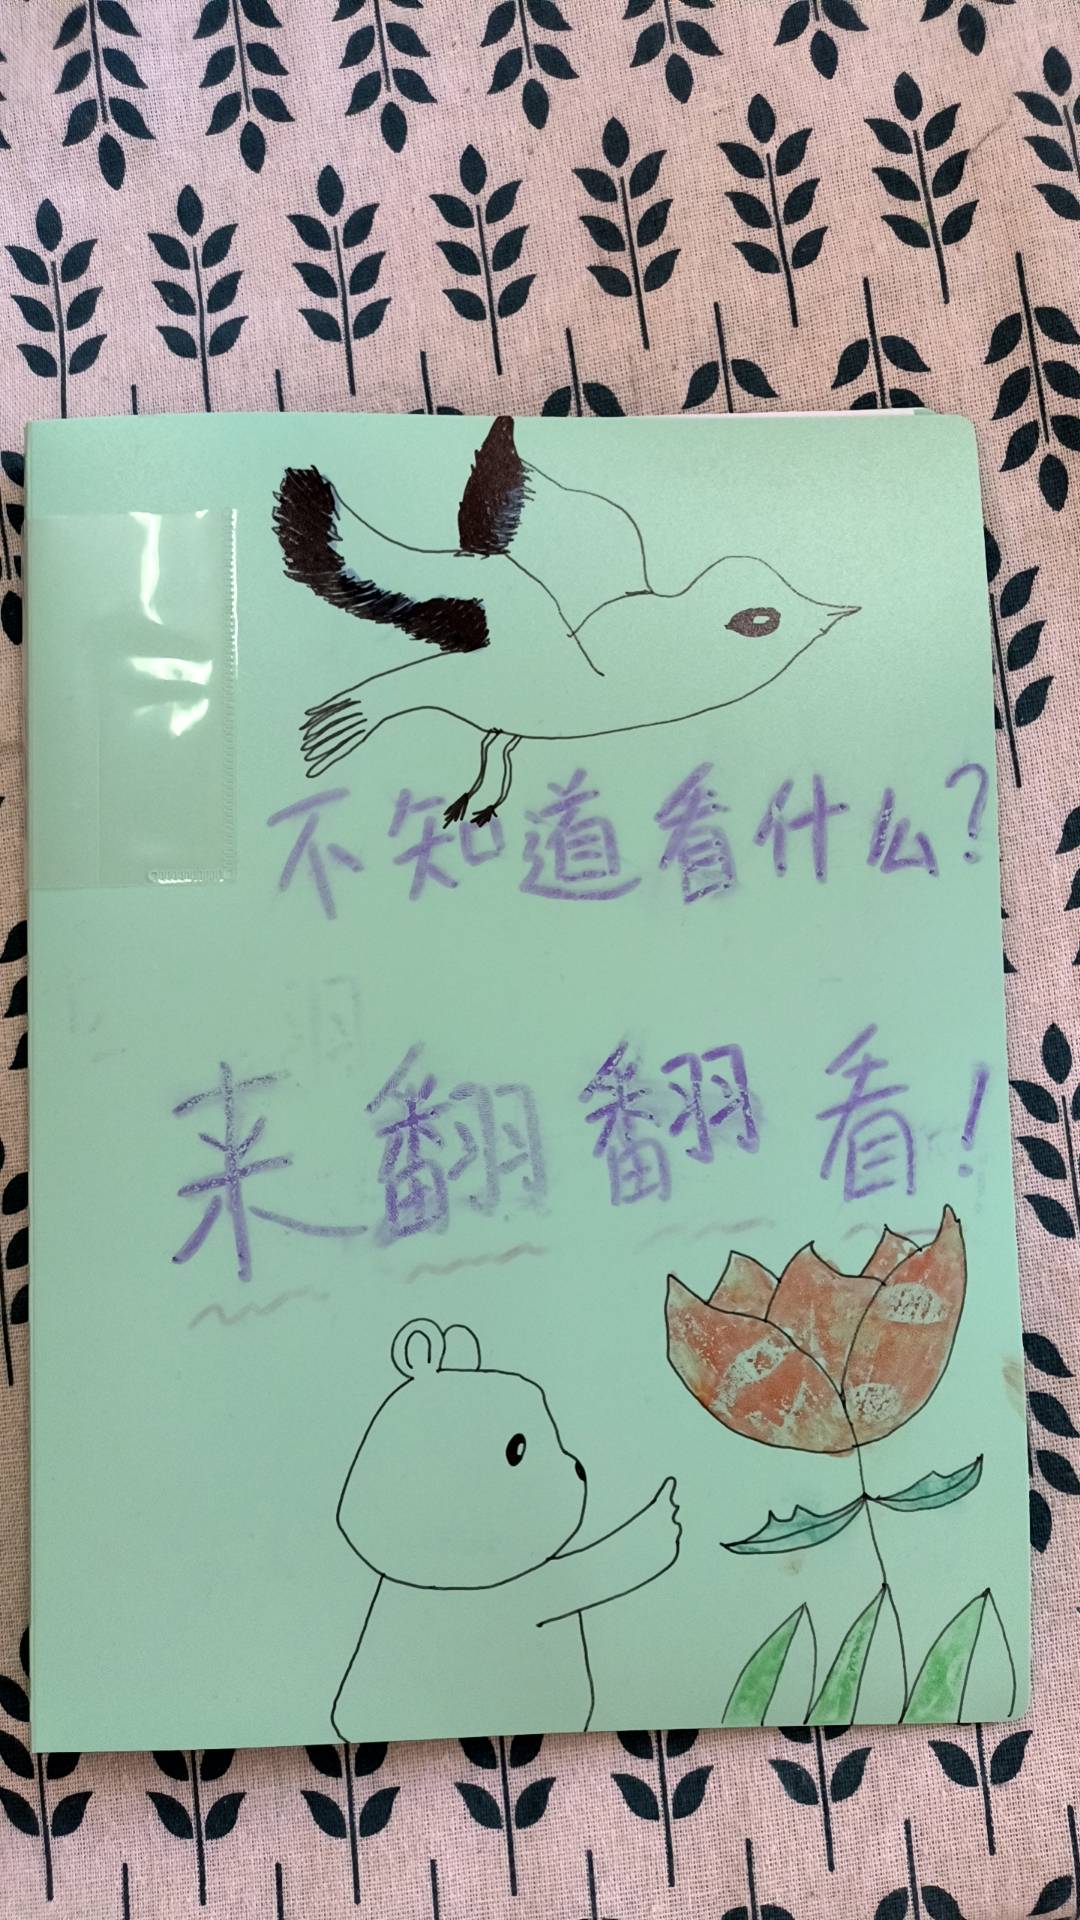 不知道看什么?
来翻翻看!